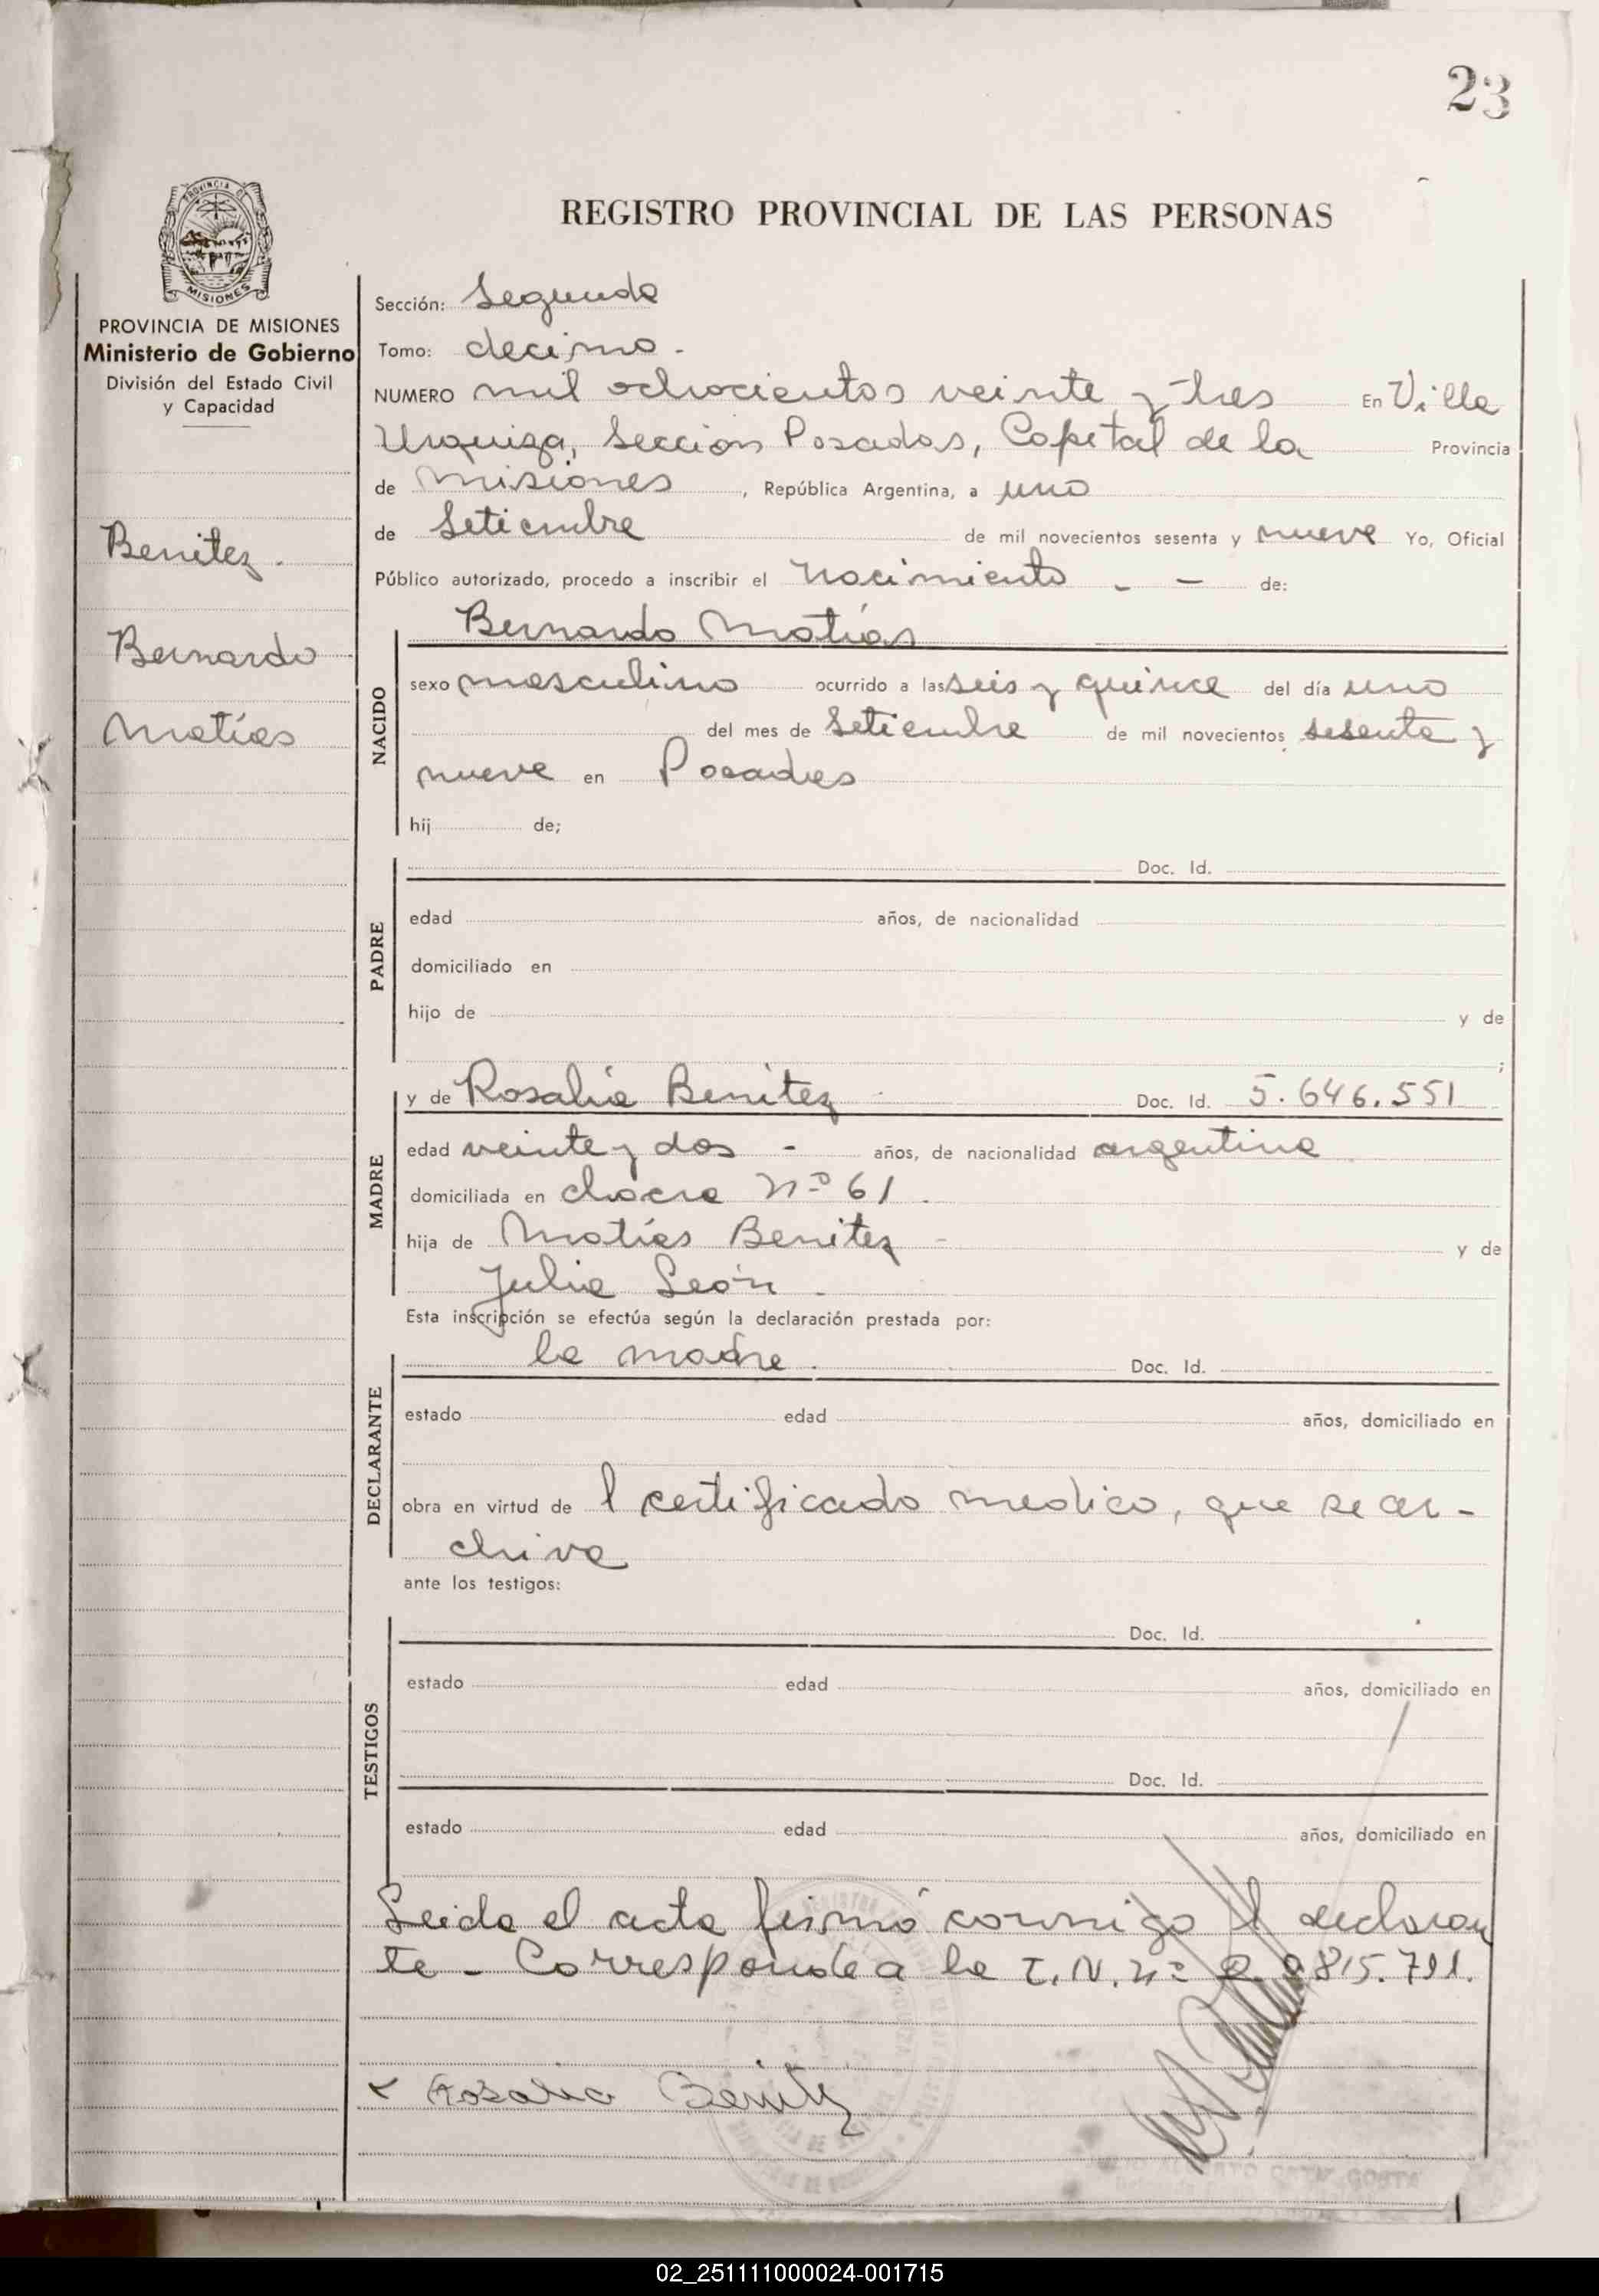 23
PROVINCIA DE
MISIONES
PROVINCIA DE MISIONES
Ministerio de Gobierno
División del Estado Civil
y Capacidad
Benitez.
Bernardo
Matías
REGISTRO PROVINCIAL DE LAS PERSONAS
Sección: Segunda
Tomo: decimo -
NUMERO mil ochocientos veinte y tres En Villa
Urquiza, Seccion Posadas, Capital de la Provincia
de Misiones, República Argentina, a uno
de Setiembre de mil novecientos sesenta y nueve Yo, Oficial
Público autorizado, procedo a inscribir el Nacimiento - - de:
Bernardo Matías
NACIDO
sexo masculino ocurrido a las seis y quince del día uno
del mes de Setiembre de mil novecientos sesenta y
nueve en Posadas
hij de;
PADRE
Doc. Id.
edad años, de nacionalidad
domiciliado en
hijo de y de
;
MADRE
y de Rosalía Benitez Doc. Id. 5.646.551
edad veinte y dos - años, de nacionalidad argentina
domiciliada en chacra Nº 61.
hija de Matías Benitez - y de
Julia León.
Esta inscripción se efectúa según la declaración prestada por:
DECLARANTE
la madre. Doc. Id.
estado edad años, domiciliado en
obra en virtud de l certificado medico, que se ar-
chiva
ante los testigos:
TESTIGOS
Doc. Id.
estado edad años, domiciliado en
Doc. Id.
estado edad años, domiciliado en
Leida el acta firmó conmigo el declaran
te - Corresponde a la T.N. nº 815.791.
Rosalia Benitez
02_251111000024-001715